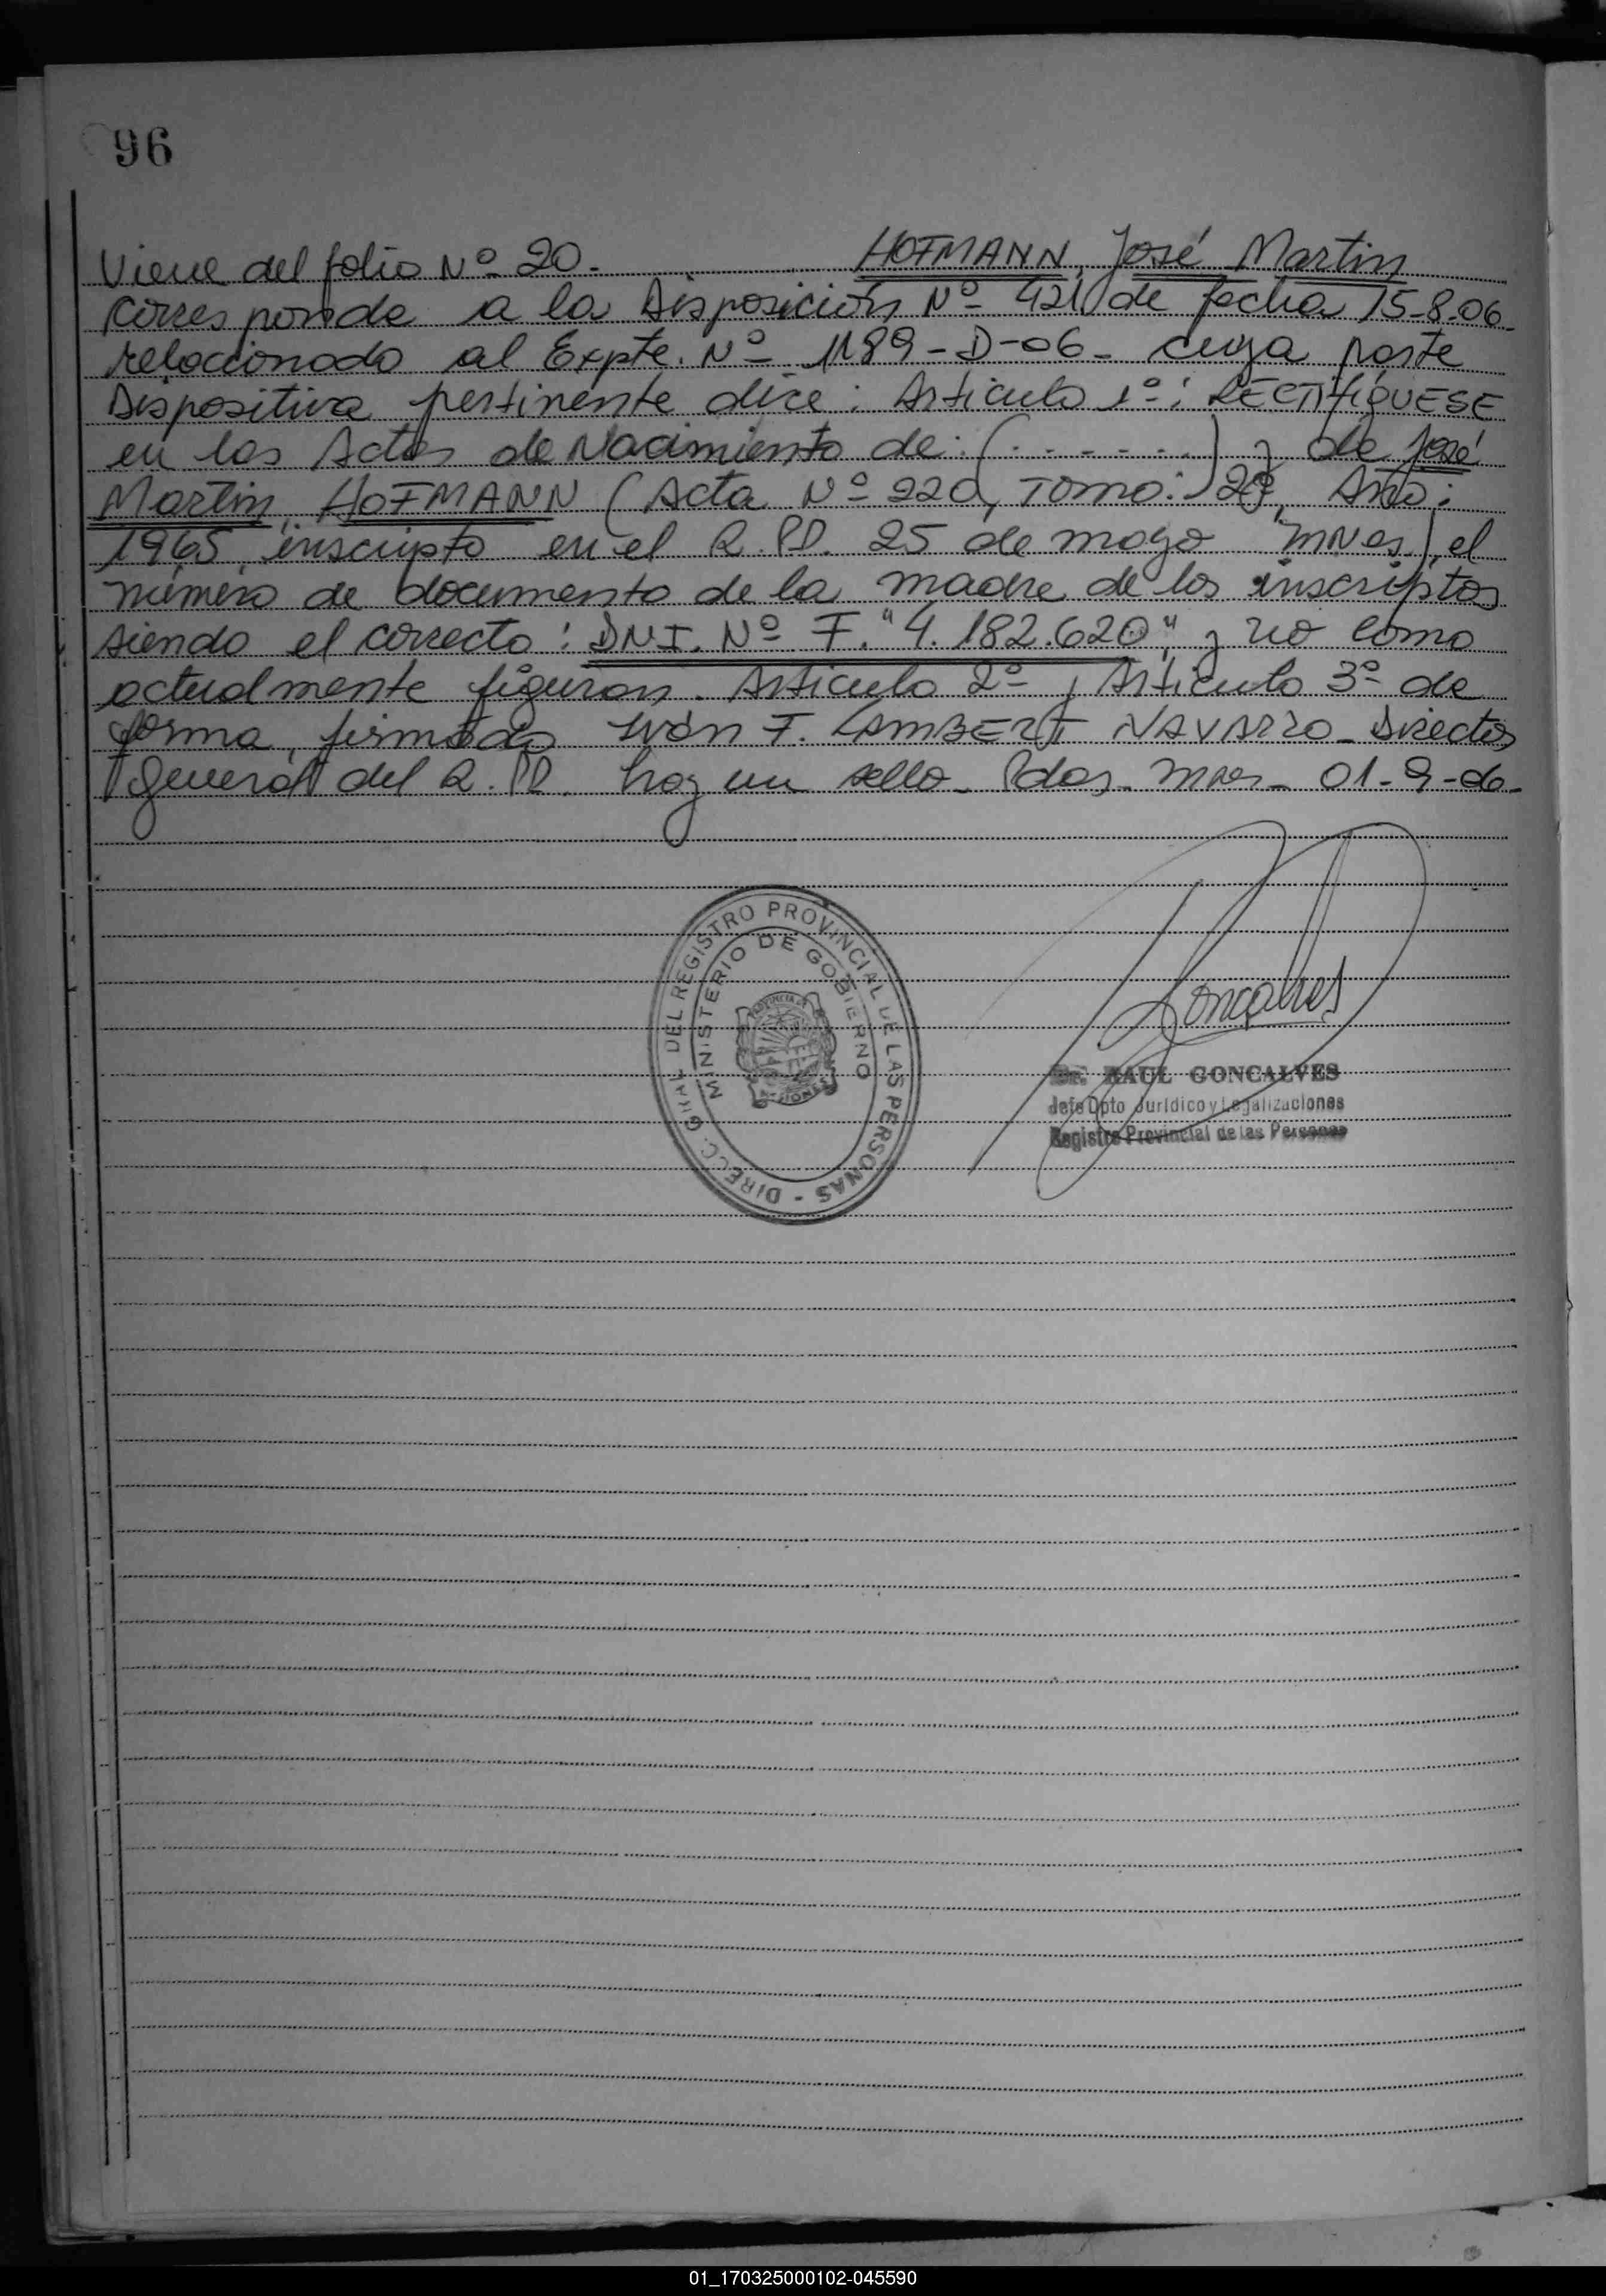 96
Viene del folio Nº 20. HOFMANN, José Martin
corresponde a la Disposición Nº 421 de fecha 15-8-06
relacionado al Expte. Nº 1189-D-06- cuya parte
Dispositiva pertinente dice: Articulo 1º: RECTIFÍQUESE
en las Actas de Nacimiento de: (......) y de José
Martin HOFMANN (Acta Nº 220, Tomo: Año:
1965, inscripto en el R.PP. 25 de mayo Mnes), el
número de documento de la madre de los inscriptos
siendo el correcto: DNI. Nº F. "4.182.620", y no como
actualmente figuran. Articulo 2º y Articulo 3º de
forma, firmado Iván F. LAMBERT NAVARRO- Director
General del R.PP. hay un sello- Pdas- Mnes- 01-9-06-
DIRECC. GRAL DEL REGISTRO PROVINCIAL DE LAS PERSONAS -
MINISTERIO DE GOBIERNO
PROVINCIA DE
MISIONES
Goncalves
Dr. RAUL GONCALVES
Jefe Dpto Jurídico y Legalizaciones
Registro Provincial de las Personas
01_170325000102-045590